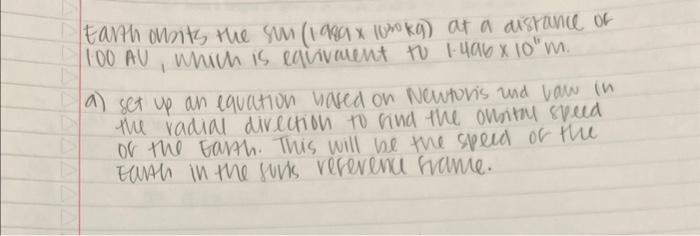 Earth orbits the sun (1.989 x 10³⁰ kg) at a distance of
1.00 AU, which is equivalent to 1.496 x 10¹¹ m.
a) set up an equation based on Newton's 2nd law in
the radial direction to find the orbital speed
of the Earth. This will be the speed of the
Earth in the sun's reference frame.